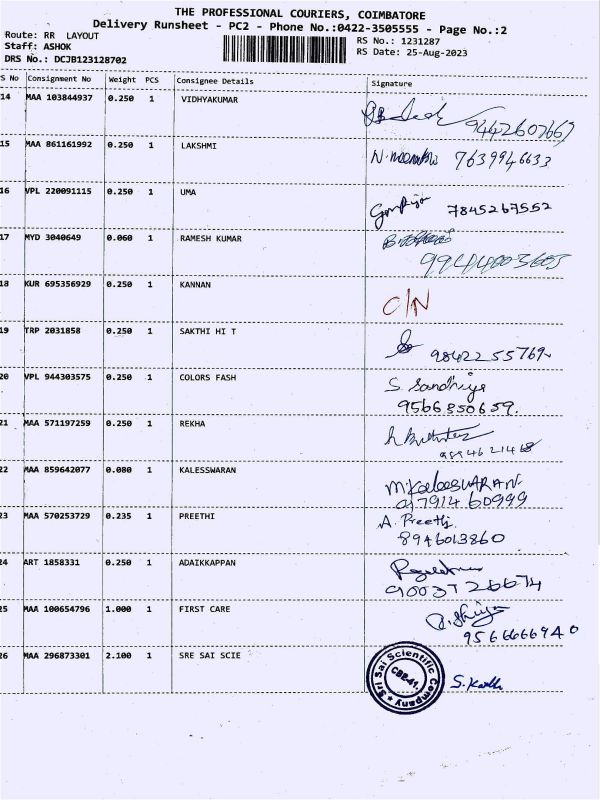 THE PROFESSIONAL COURIERS, COIMBATORE
Delivery Runsheet - PC2 - Phone No.:0422-3505555 - Page No.:2
Route: RR LAYOUT
RS No.: 1231287
Staff: ASHOK
RS Date: 25-Aug-2023
DRS No.: DCJB123128702
S No Consignment No Weight PCS Consignee Details Signature
14 MAA 103844937 0.250 1 VIDHYAKUMAR
9442607667
15 MAA 861161992 0.250 1 LAKSHMI
7639946633
16 VPL 220091115 0.250 1 UMA
7845267552
17 MYD 3040649 0.060 1 RAMESH KUMAR
9944003603
18 KUR 695356929 0.250 1 KANNAN
C/N
19 TRP 2031858 0.250 1 SAKTHI HI T
20 VPL 944303575 0.250 1 COLORS FASH S. Sandhiya
9566350659.
21 MAA 571197259 0.250 1 REKHA
22 MAA 859642077 0.080 1 KALESSWARAN
M.KaleesWARAN.
23 MAA 570253729 0.235 1 PREETHI A. Preethi
8946013860
24 ART 1858331 0.250 1 ADAIKKAPPAN
25 MAA 100654796 1.000 1 FIRST CARE
9566666940
26 MAA 296873301 2.100 1 SRE SAI SCIE
Sri Sai Scientific Company
CBE-41.